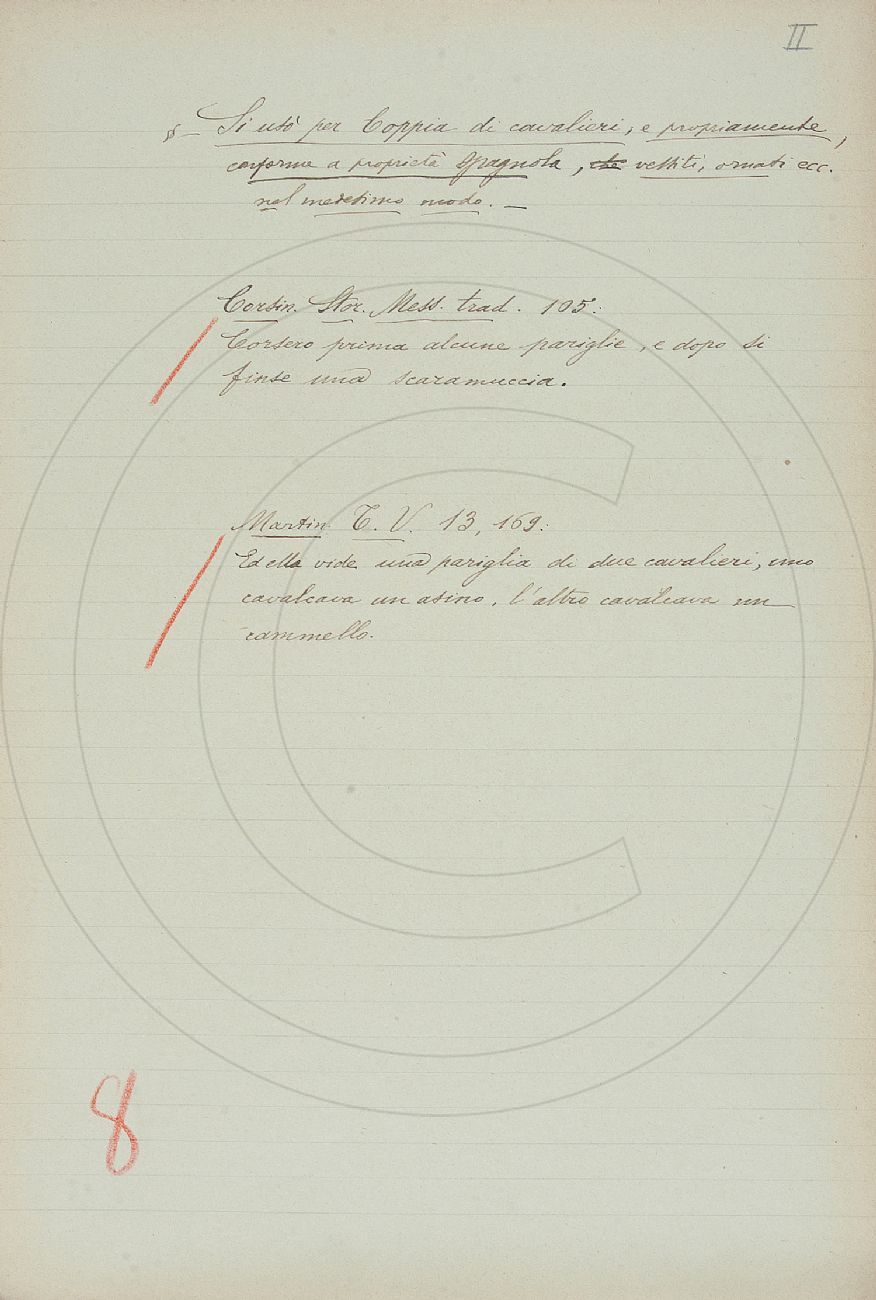 II
§ – Si usò per Coppia di cavalieri, e propriamente,
conforme a proprietà spagnola, che vestiti, ornati ecc.
nel medesimo modo. –
Corsin. Stor. Mess. trad. 105:
Corsero prima alcune pariglie, e dopo si
finse una scaramuccia.
Martin. T. V. 13, 169:
Ed ella vide una pariglia di due cavalieri, uno
cavalcava un asino, l'altro cavalcava un
cammello.
8